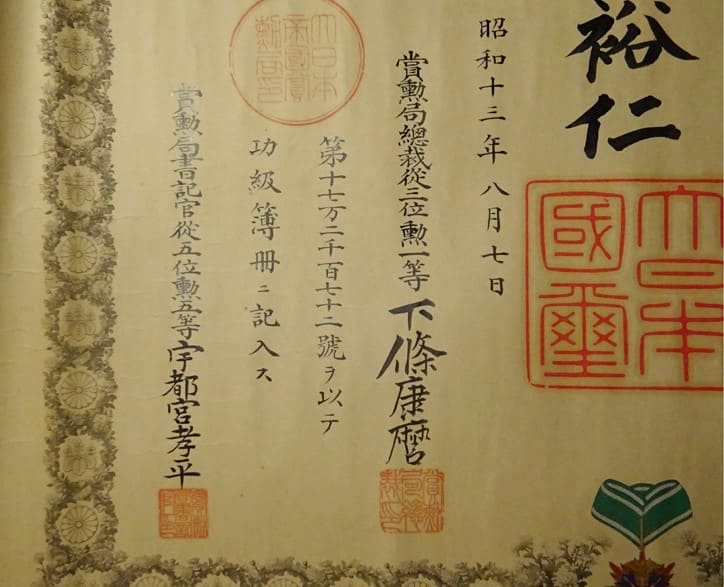 裕仁
大日本國璽
昭和十三年八月七日
賞勲局總裁從三位勲一等下條康麿
第十七万二千百七十二號ヲ以テ
功級簿冊ニ記入ス
大日本帝國賞勲局印
賞勲局書記官從五位勲五等宇都宮孝平